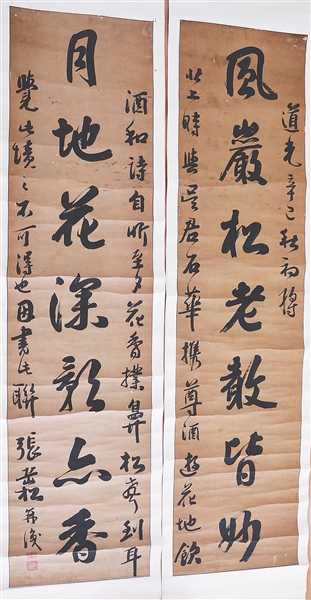 道光辛巳秋初搨
風巖松老鼓皆妙
此上時與吳君石華攜尊酒遊花地飲
酒和詩自昕至夕花香撲鼻松聲到耳
月地花深影亦香
覺此境之不可得也因書此聯 張菘再溪